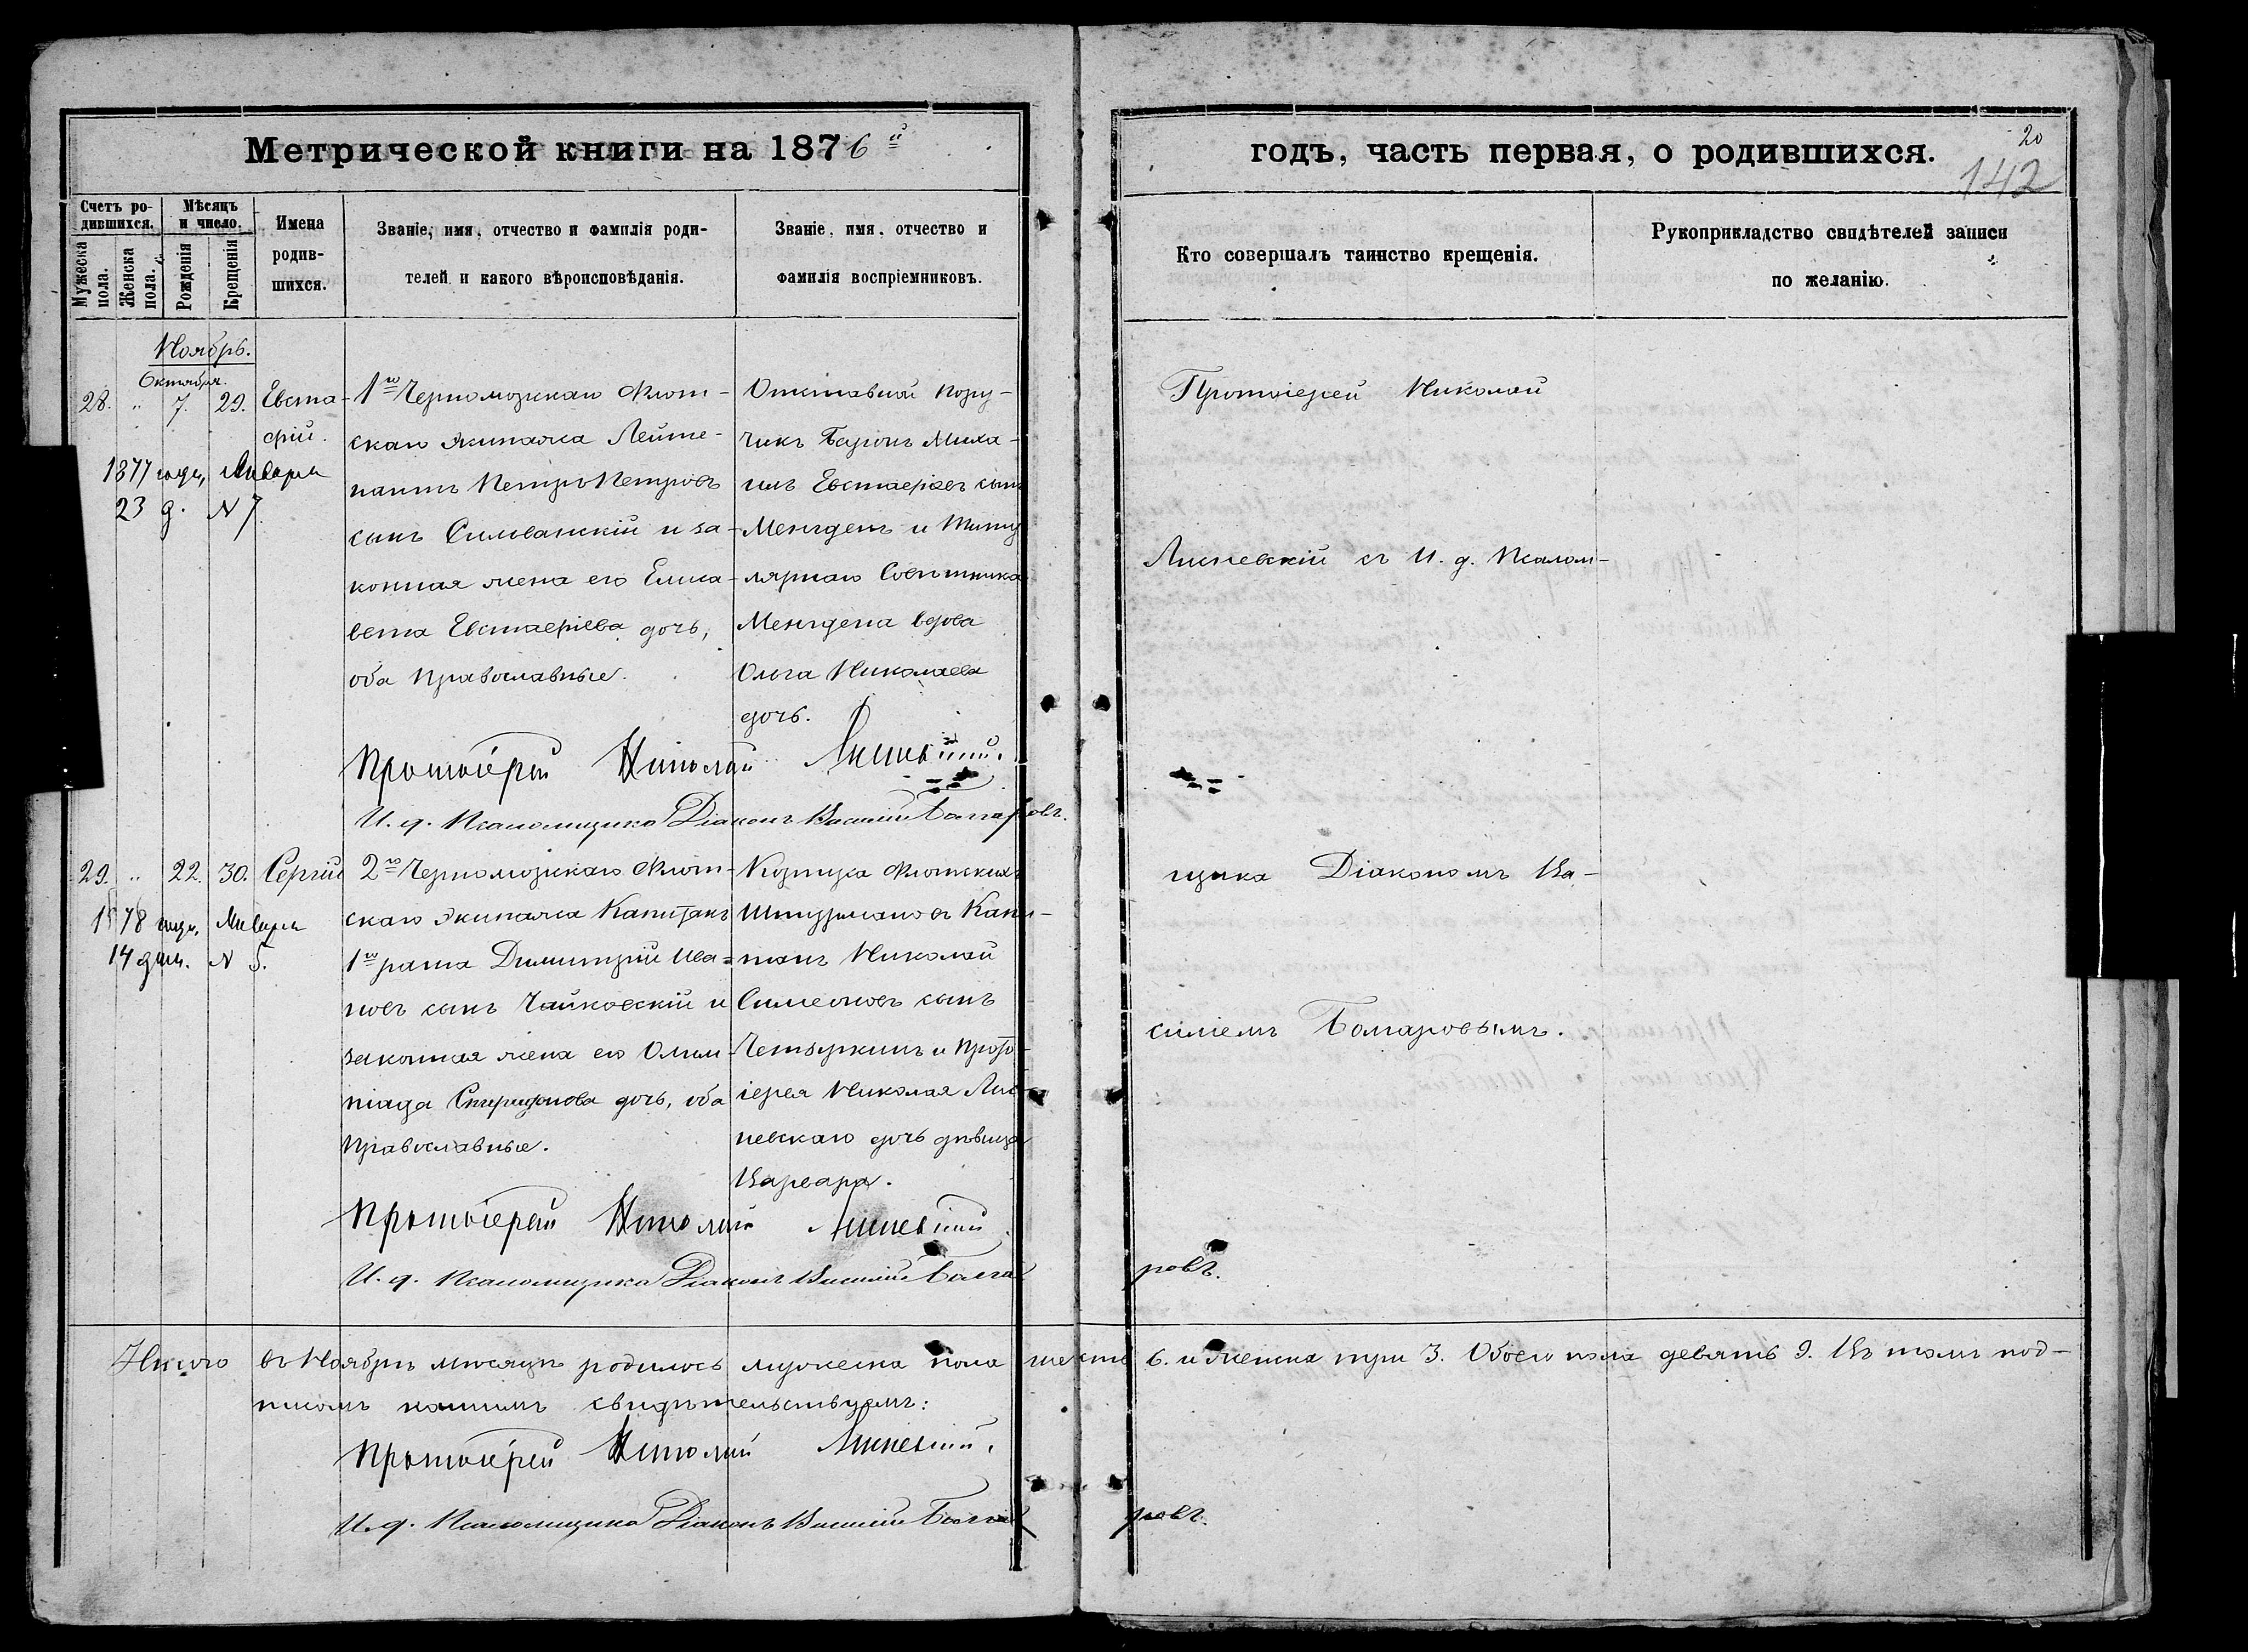 Метрической книги на 1876 й
годъ, часть первая, о родившихся.
20
142
Счетъ ро-
дившихся.
Мужеска пола.
Женска пола.
Мѣсяцъ
и число.
Рожденія
Крещенія
Имена
родив-
шихся.
Званіе, имя, отчество и фамилія роди-
телей и какого вѣроисповѣданія.
Званіе, имя, отчество и
фамилія воспріемниковъ.
Кто совершалъ таинство крещенія.
Рукоприкладство свидѣтелей записи
по желанію.
Ноябрь.
Октября.
28. " 7. 29. Евста-
фій.
1877 года, Января
23 д. N 7.
1го Черноморскаго Флот-
скаго экипажа Лейте-
нантъ Петръ Петровъ
сынъ Сильванскій и за-
конная жена его Елиса-
вета Евстафіева дочь,
оба Православные.
Отставной Пору-
чикъ Баронъ Миха-
илъ Евстафіевъ сынъ
Менгденъ и Титу
лярнаго Совѣтника
Менгдена вдова
Ольга Николаева
дочь.
Протоіерей Николай
Линевскій съ И. д. Псалом-
щика Діакономъ Ва-
силіемъ Болгаровымъ.
Протоіерей Николай Линевскій.
И. д. Псаломщика Діаконъ Василій Болгаровъ.
29. " 22. 30. Сергій
1878 года, Января
14 дня. N 5.
2го Черноморскаго Флот-
скаго экипажа Капитанъ
1го ранга Димитрій Ива-
новъ сынъ Чайковскій и
законная жена его Олим-
піада Спиридонова дочь, оба
Православные.
Корпуса Флотскихъ
Штурмановъ Капи-
танъ Николай
Симеоновъ сынъ
Четвуркинъ и Прото-
іерея Николая Ли-
невскаго дочь дѣвица
Варвара.
Протоіерей Николай Линевскій
И. д. Псаломщика Діаконъ Василій Болгаровъ.
Итого въ Ноябрѣ мѣсяцѣ родилось мужеска пола шесть 6. и женска три 3. Обоего пола девять 9. Въ томъ под-
писомъ нашимъ свидѣтельствуемъ:
Протоіерей Николай Линевскій.
И. д. Псаломщика Діаконъ Василій Болгаровъ.